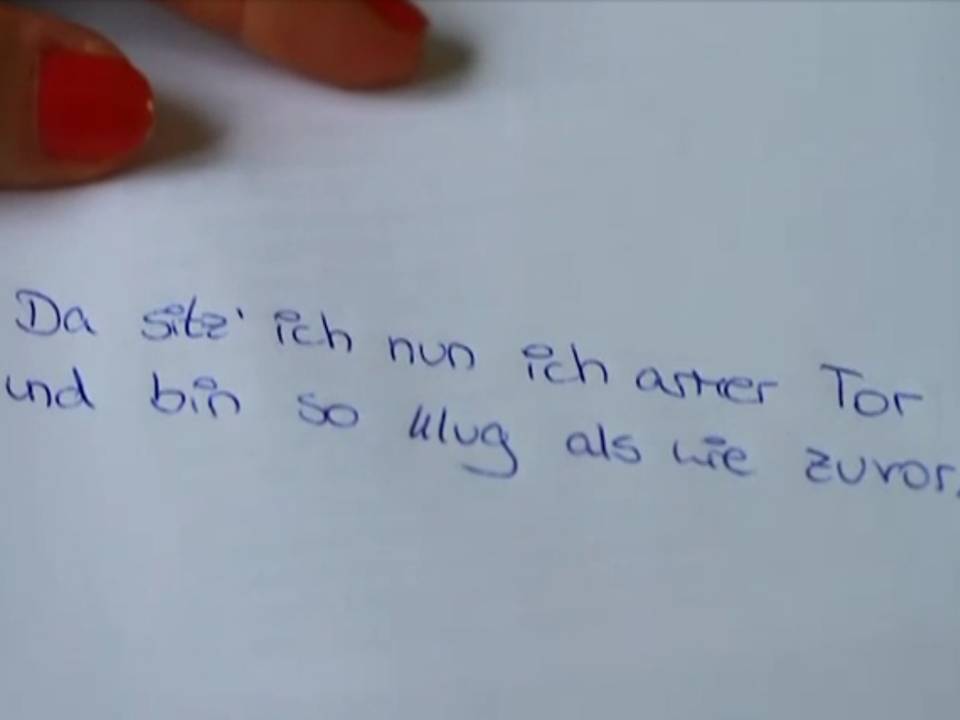 Da sitz' ich nun ich armer Tor
und bin so klug als wie zuvor.